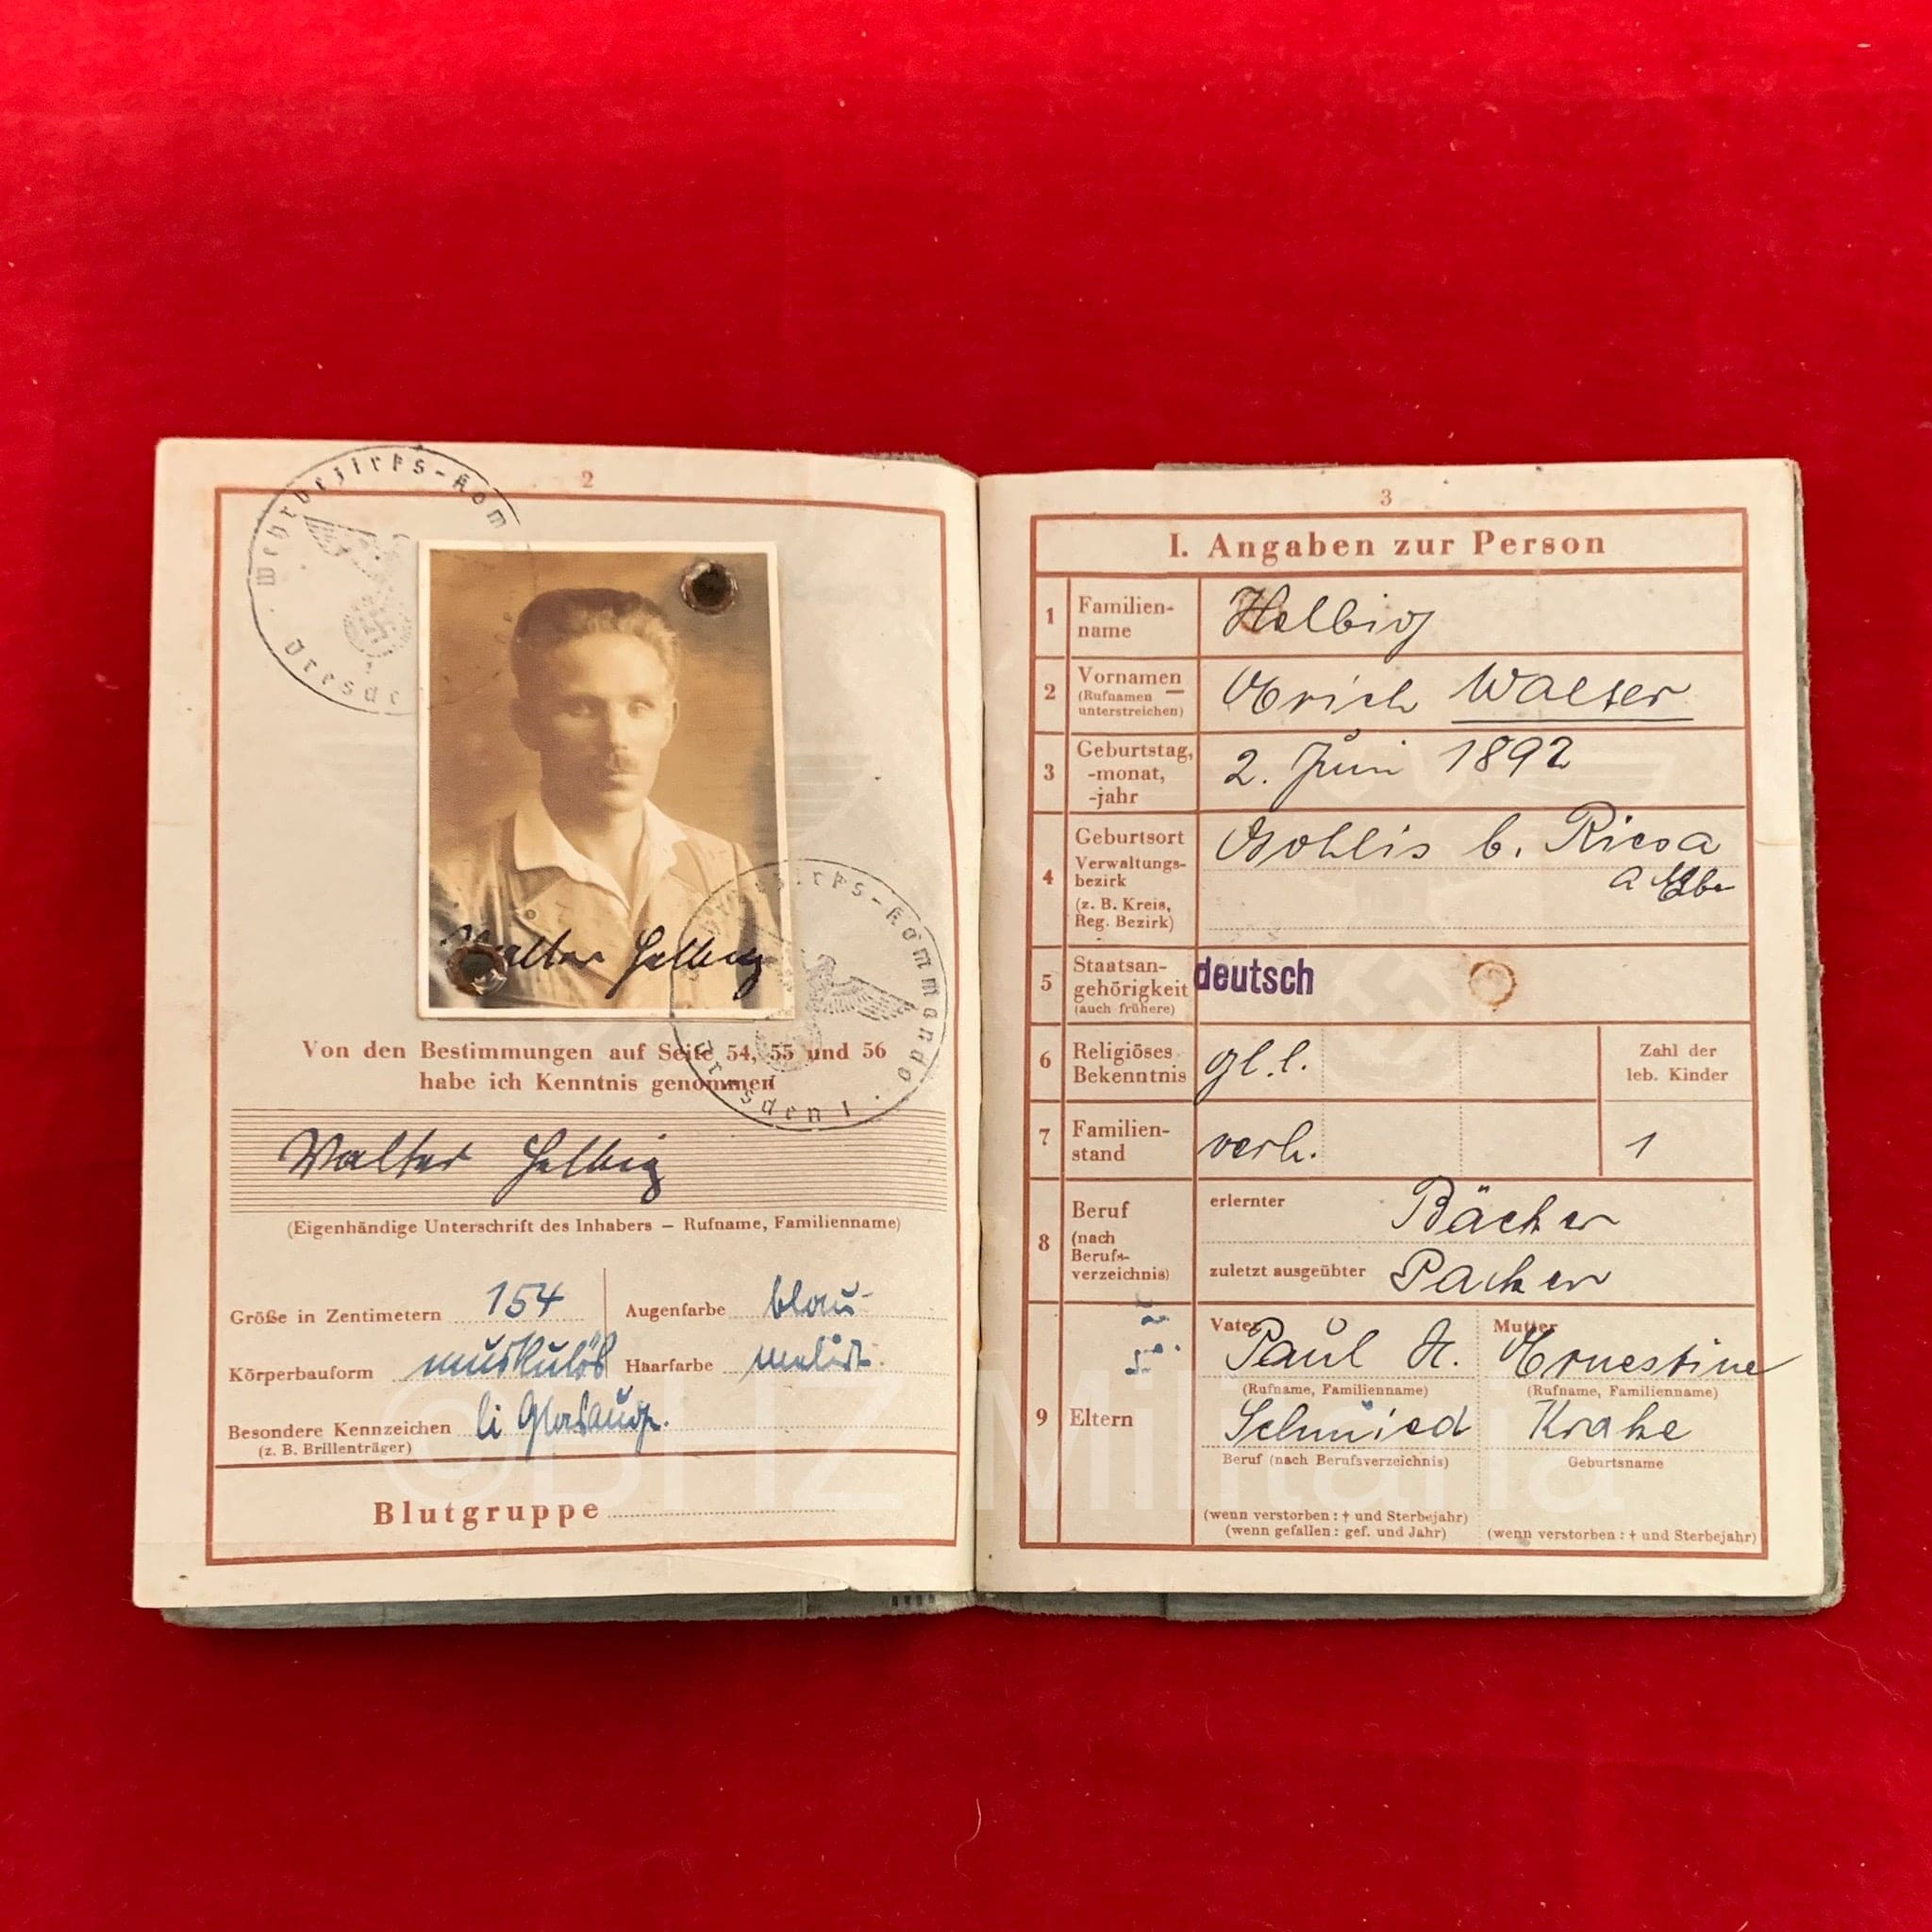 2
Wehrbezirks-Kom
Dresde
Walter Helbig
Wehrbezirks-Kommando
Dresden I
Von den Bestimmungen auf Seite 54, 55 und 56
habe ich Kenntnis genommen
Walter Helbig
(Eigenhändige Unterschrift des Inhabers – Rufname, Familienname)
Größe in Zentimetern 154 Augenfarbe blau
Körperbauform muskulös Haarfarbe meliert
Besondere Kennzeichen li Glasauge.
(z. B. Brillenträger)
Blutgruppe
3
I. Angaben zur Person
1 Familien-
name
Helbig
2 Vornamen
(Rufnamen
unterstreichen)
Erich Walter
3 Geburtstag,
-monat,
-jahr
2. Juni 1892
4 Geburtsort
Verwaltungs-
bezirk
(z. B. Kreis,
Reg. Bezirk)
Gohlis b. Riesa
a Elbe
5 Staatsan-
gehörigkeit
(auch frühere)
deutsch
6 Religiöses
Bekenntnis
gl. l.
Zahl der
leb. Kinder
7 Familien-
stand
verh.
1
8 Beruf
(nach
Berufs-
verzeichnis)
erlernter Bäcker
zuletzt ausgeübter Packer
9 Eltern
Vater
Paul H.
(Rufname, Familienname)
Schmied
Beruf (nach Berufsverzeichnis)
(wenn verstorben: † und Sterbejahr)
(wenn gefallen: gef. und Jahr)
Mutter
Ernestine
(Rufname, Familienname)
Krake
Geburtsname
(wenn verstorben: † und Sterbejahr)
Militaria